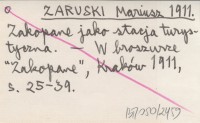 ZARUSKI Mariusz 1911.
Zakopane jako stacja turys-
tyczna. — W broszurze
"Zakopane", Kraków 1911,
s. 25-39.